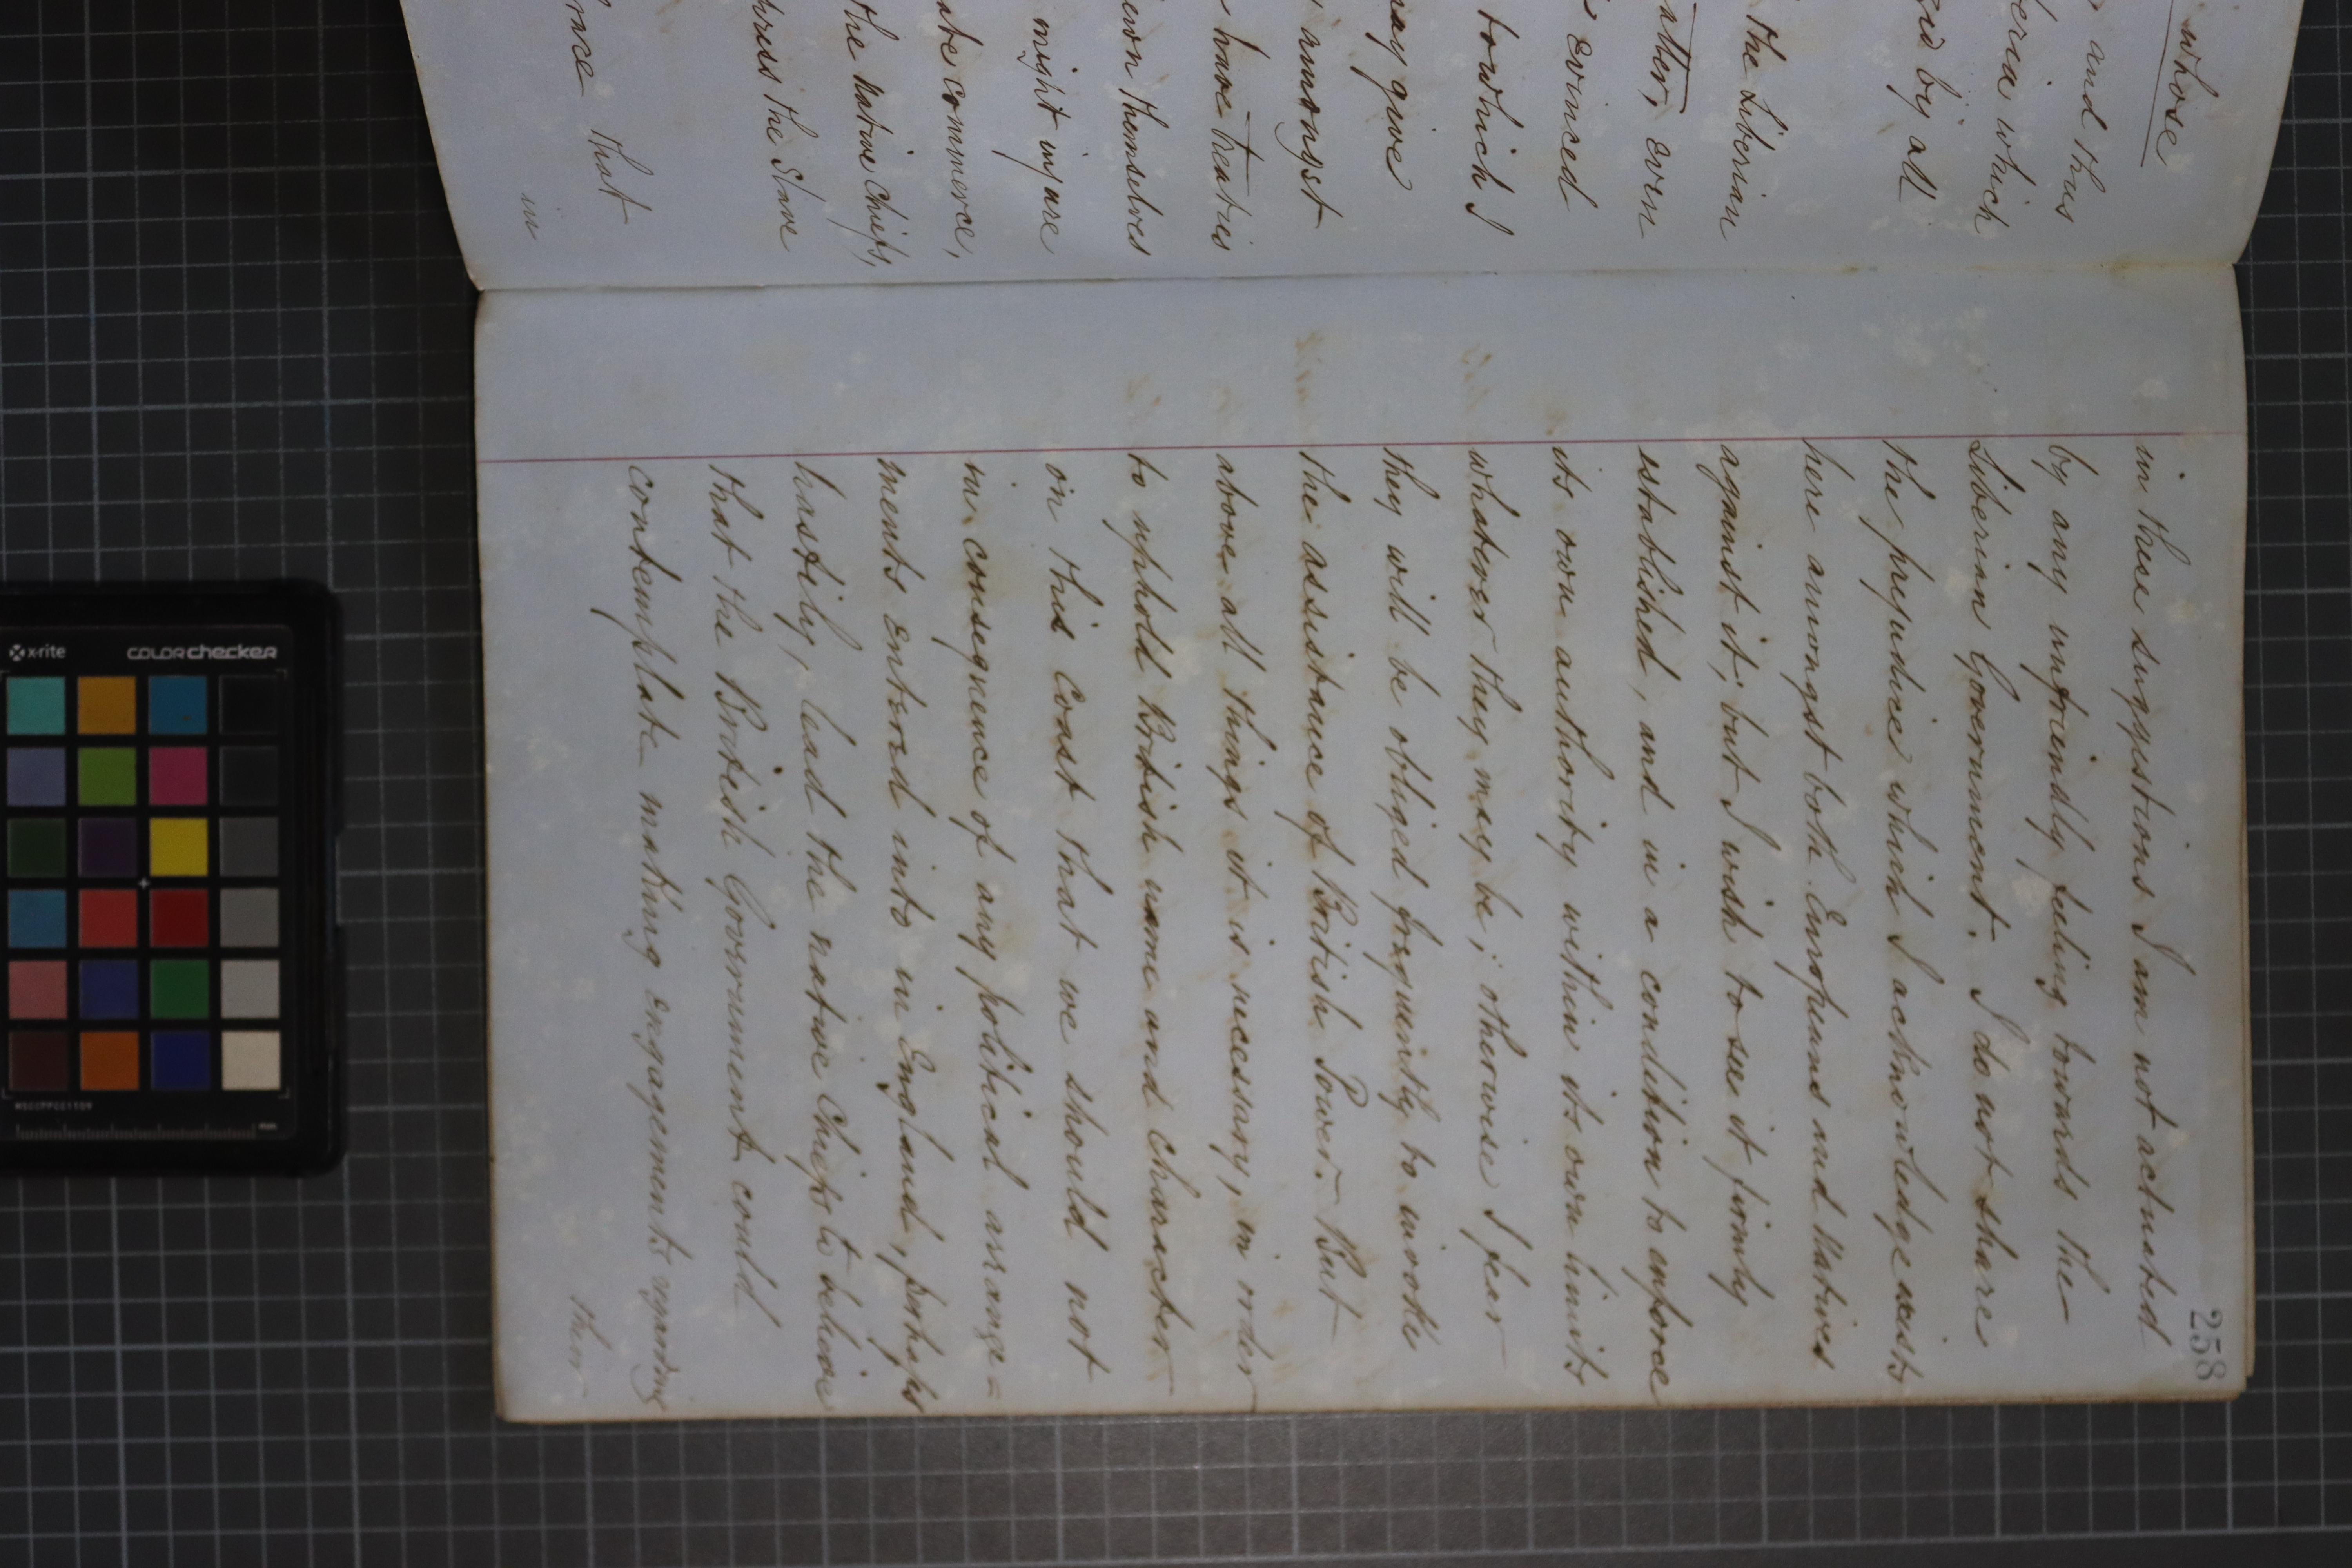 whose
and thus
which
by all
the Liberian
even
evinced
to which I
amongst
may give
have treaties
themselves
might injure
commerce,
the native chiefs,
the Slave
that
in
258
in these suggestions I am not actuated
by any unfriendly feeling towards the
Liberian Government. I do not share
the prejudice which I acknowledge exists
here amongst both Europeans and Natives
against it; but I wish to see it firmly
established, and in a condition to enforce
its own authority within its own limits
whatever they may be; otherwise I fear
they will be obliged frequently to invoke
the assistance of British Power. But
above all things it is necessary, in order
to uphold British name and character
on this Coast that we should not
in consequence of any political arrange=
ments entered into in England, perhaps
hastily, lead the native Chiefs to believe
that the British Government could
contemplate making engagements regarding
their
x-rite
colorchecker